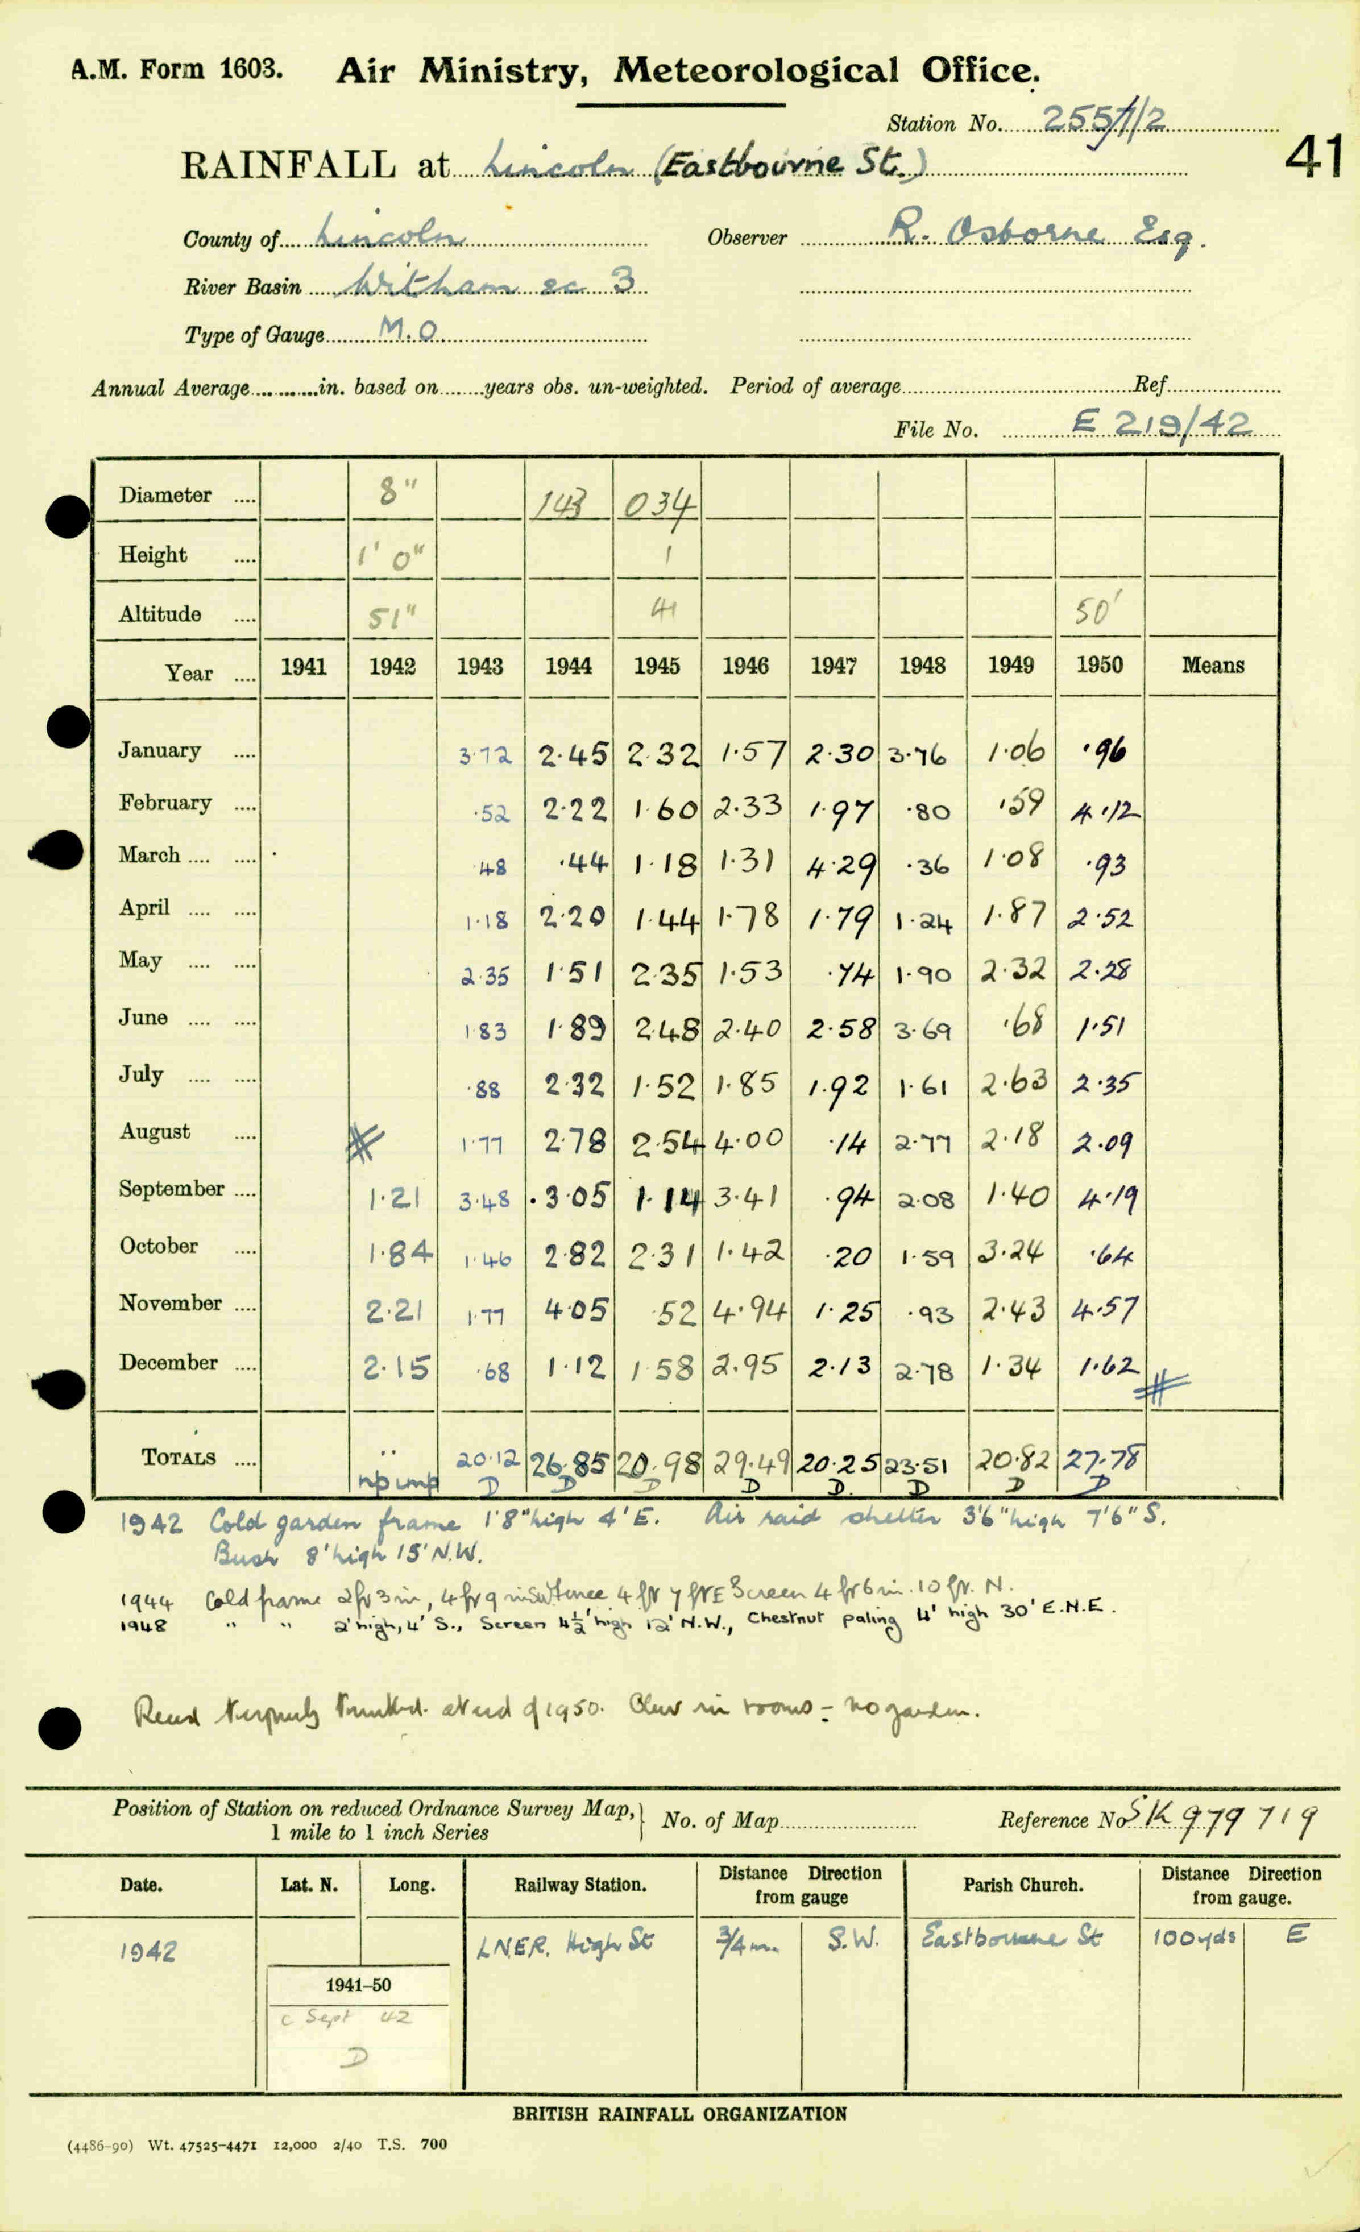 A.M. Form 1603. Air Ministry, Meteorological Office.
Station No. 255
41
RAINFALL at Lincoln (Eastbourne St.)
County of Lincoln Observer R. Osborne Esq.
River Basin Witham sc 3
Type of Gauge M.O.
Annual Average in. based on years obs. un-weighted. Period of average Ref.
File No. E 219/42
Diameter 8" 143 034
Height 1' 0" 1
Altitude 51" 41 50'
Year 1941 1942 1943 1944 1945 1946 1947 1948 1949 1950 Means
January 3.72 2.45 2.32 1.57 2.30 3.76 1.06 .96
February .52 2.22 1.60 2.33 1.97 .80 .59 4.12
March .48 .44 1.18 1.31 4.29 .36 1.08 .93
April 1.18 2.20 1.44 1.78 1.79 1.24 1.87 2.52
May 2.35 1.51 2.35 1.53 .74 1.90 2.32 2.28
June 1.83 1.89 2.48 2.40 2.58 3.69 .68 1.51
July .88 2.32 1.52 1.85 1.92 1.61 2.63 2.35
August 1.77 2.78 2.54 4.00 .14 2.77 2.18 2.09
September 1.21 3.48 3.05 1.14 3.41 .94 2.08 1.40 4.19
October 1.84 1.46 2.82 2.31 1.42 .20 1.59 3.24 .64
November 2.21 1.77 4.05 .52 4.94 1.25 .93 2.43 4.57
December 2.15 .68 1.12 1.58 2.95 2.13 2.78 1.34 1.62
TOTALS 20.12 26.85 20.98 29.49 20.25 23.51 20.82 27.78
np imp D D D D D D D D
1942 Cold garden frame 1'8" high 4' E. Air raid shelter 3'6" high 7'6" S.
Bush 8' high 15' N.W.
1944 Cold frame 2 ft 3 in, 4 ft 9 in fence 4 ft 7 ft E Screen 4 ft 6 in. 10 ft. N.
1948 " " 2' high, 4' S., Screen 4½' high 12' N.W., Chestnut paling 4' high 30' E.N.E.
at end of 1950. in rooms - no garden.
Position of Station on reduced Ordnance Survey Map, 1 mile to 1 inch Series No. of Map Reference No SK 979 719
Date. Lat. N. Long. Railway Station. Distance Direction from gauge Parish Church. Distance Direction from gauge.
1942 LNER. High St 3/4 m. S.W. Eastbourne St 100 yds E
1941-50
c Sept 42
D
BRITISH RAINFALL ORGANIZATION
(4486-90) Wt. 47525-4471 12,000 2/40 T.S. 700